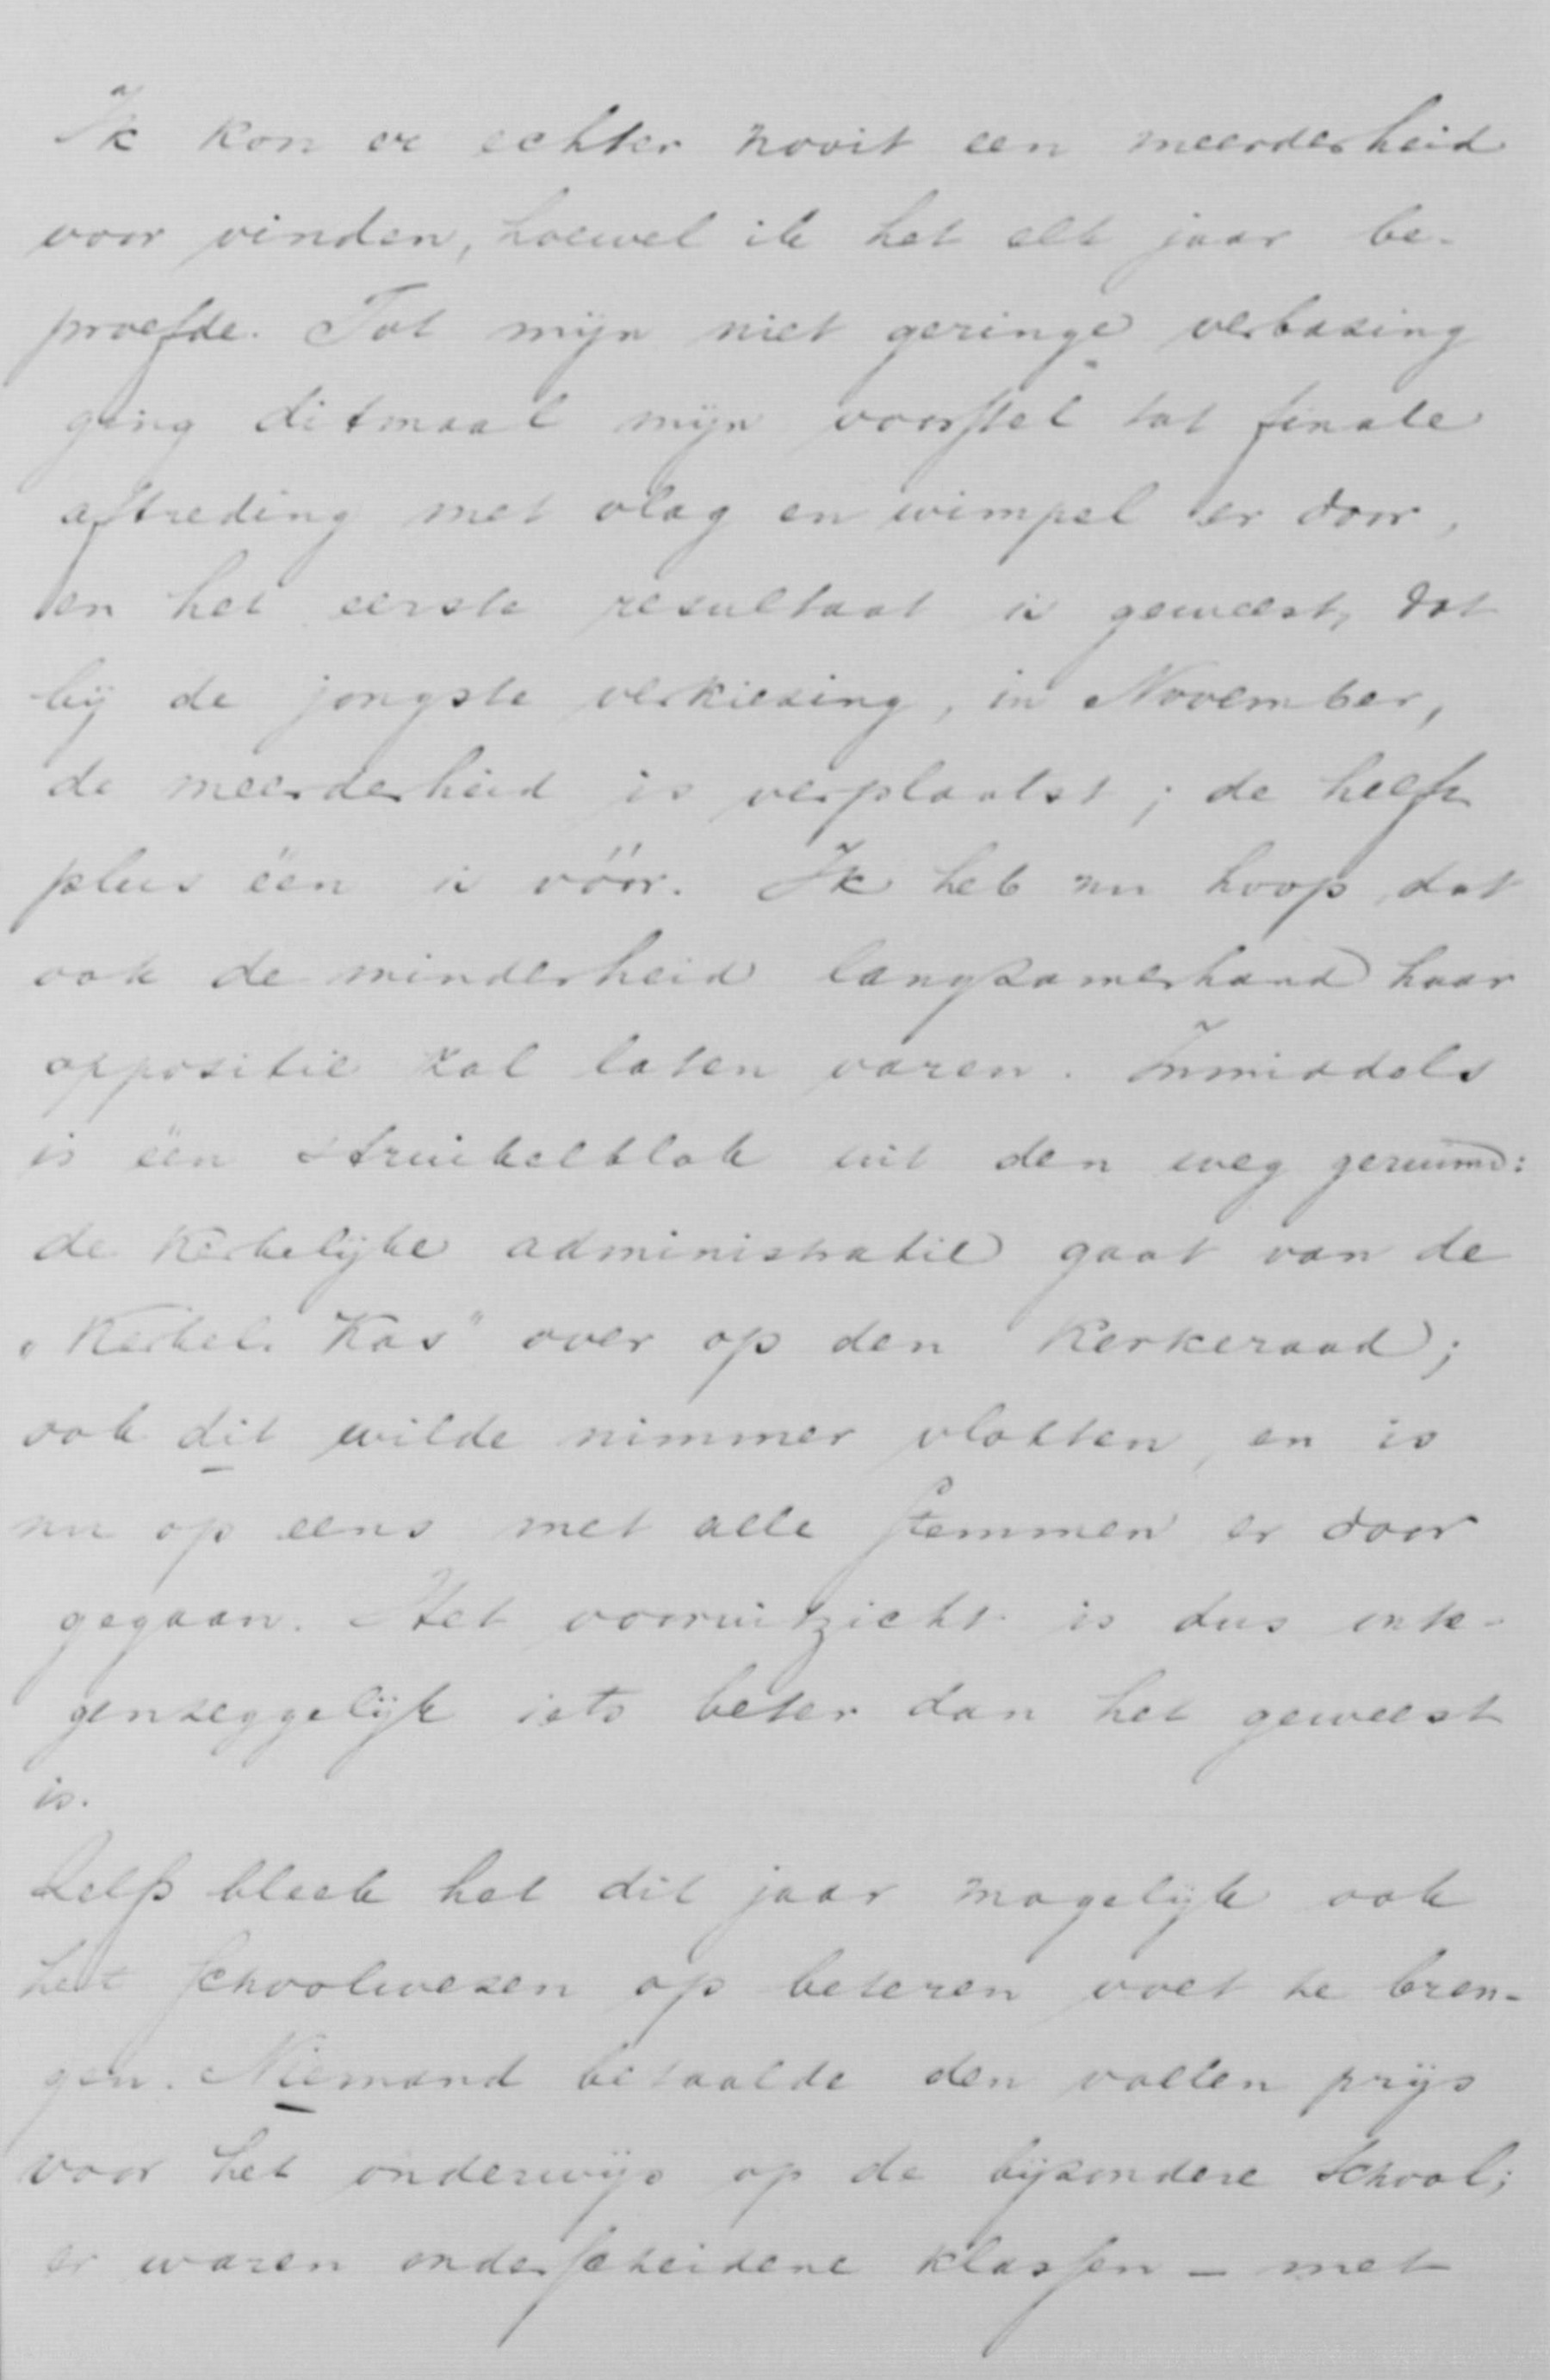 Ik kon er echter nooit een meerderheid
voor vinden, hoewel ik het elk jaar be-
proefde. Tot mijn niet geringe verbazing
ging ditmaal mijn voorstel tot finale
aftreding met vlag en wimpel er door,
en het eerste resultaat is geweest, dat
bij de jongste verkiezing, in November,
de meerderheid is verplaatst; de helft
plus één is vóór. Ik heb nu hoop, dat
ook de minderheid langzamerhand haar
oppositie zal laten varen. Inmiddels
is één struikelblok uit den weg geruimd:
de Kerkelijke administratie gaat van de
„Kerkel. Kas" over op den Kerkeraad;
ook dit wilde nimmer vlotten, en is
nu op eens met alle stemmen er door
gegaan. Het vooruitzicht is dus onte-
genzeggelijk iets beter dan het geweest
is.
Zelfs bleek het dit jaar mogelijk ook
het schoolwezen op beteren voet te bren-
gen. Niemand betaalde den vollen prijs
voor het onderwijs op de bijzondere School;
er waren onderscheidene klassen – met